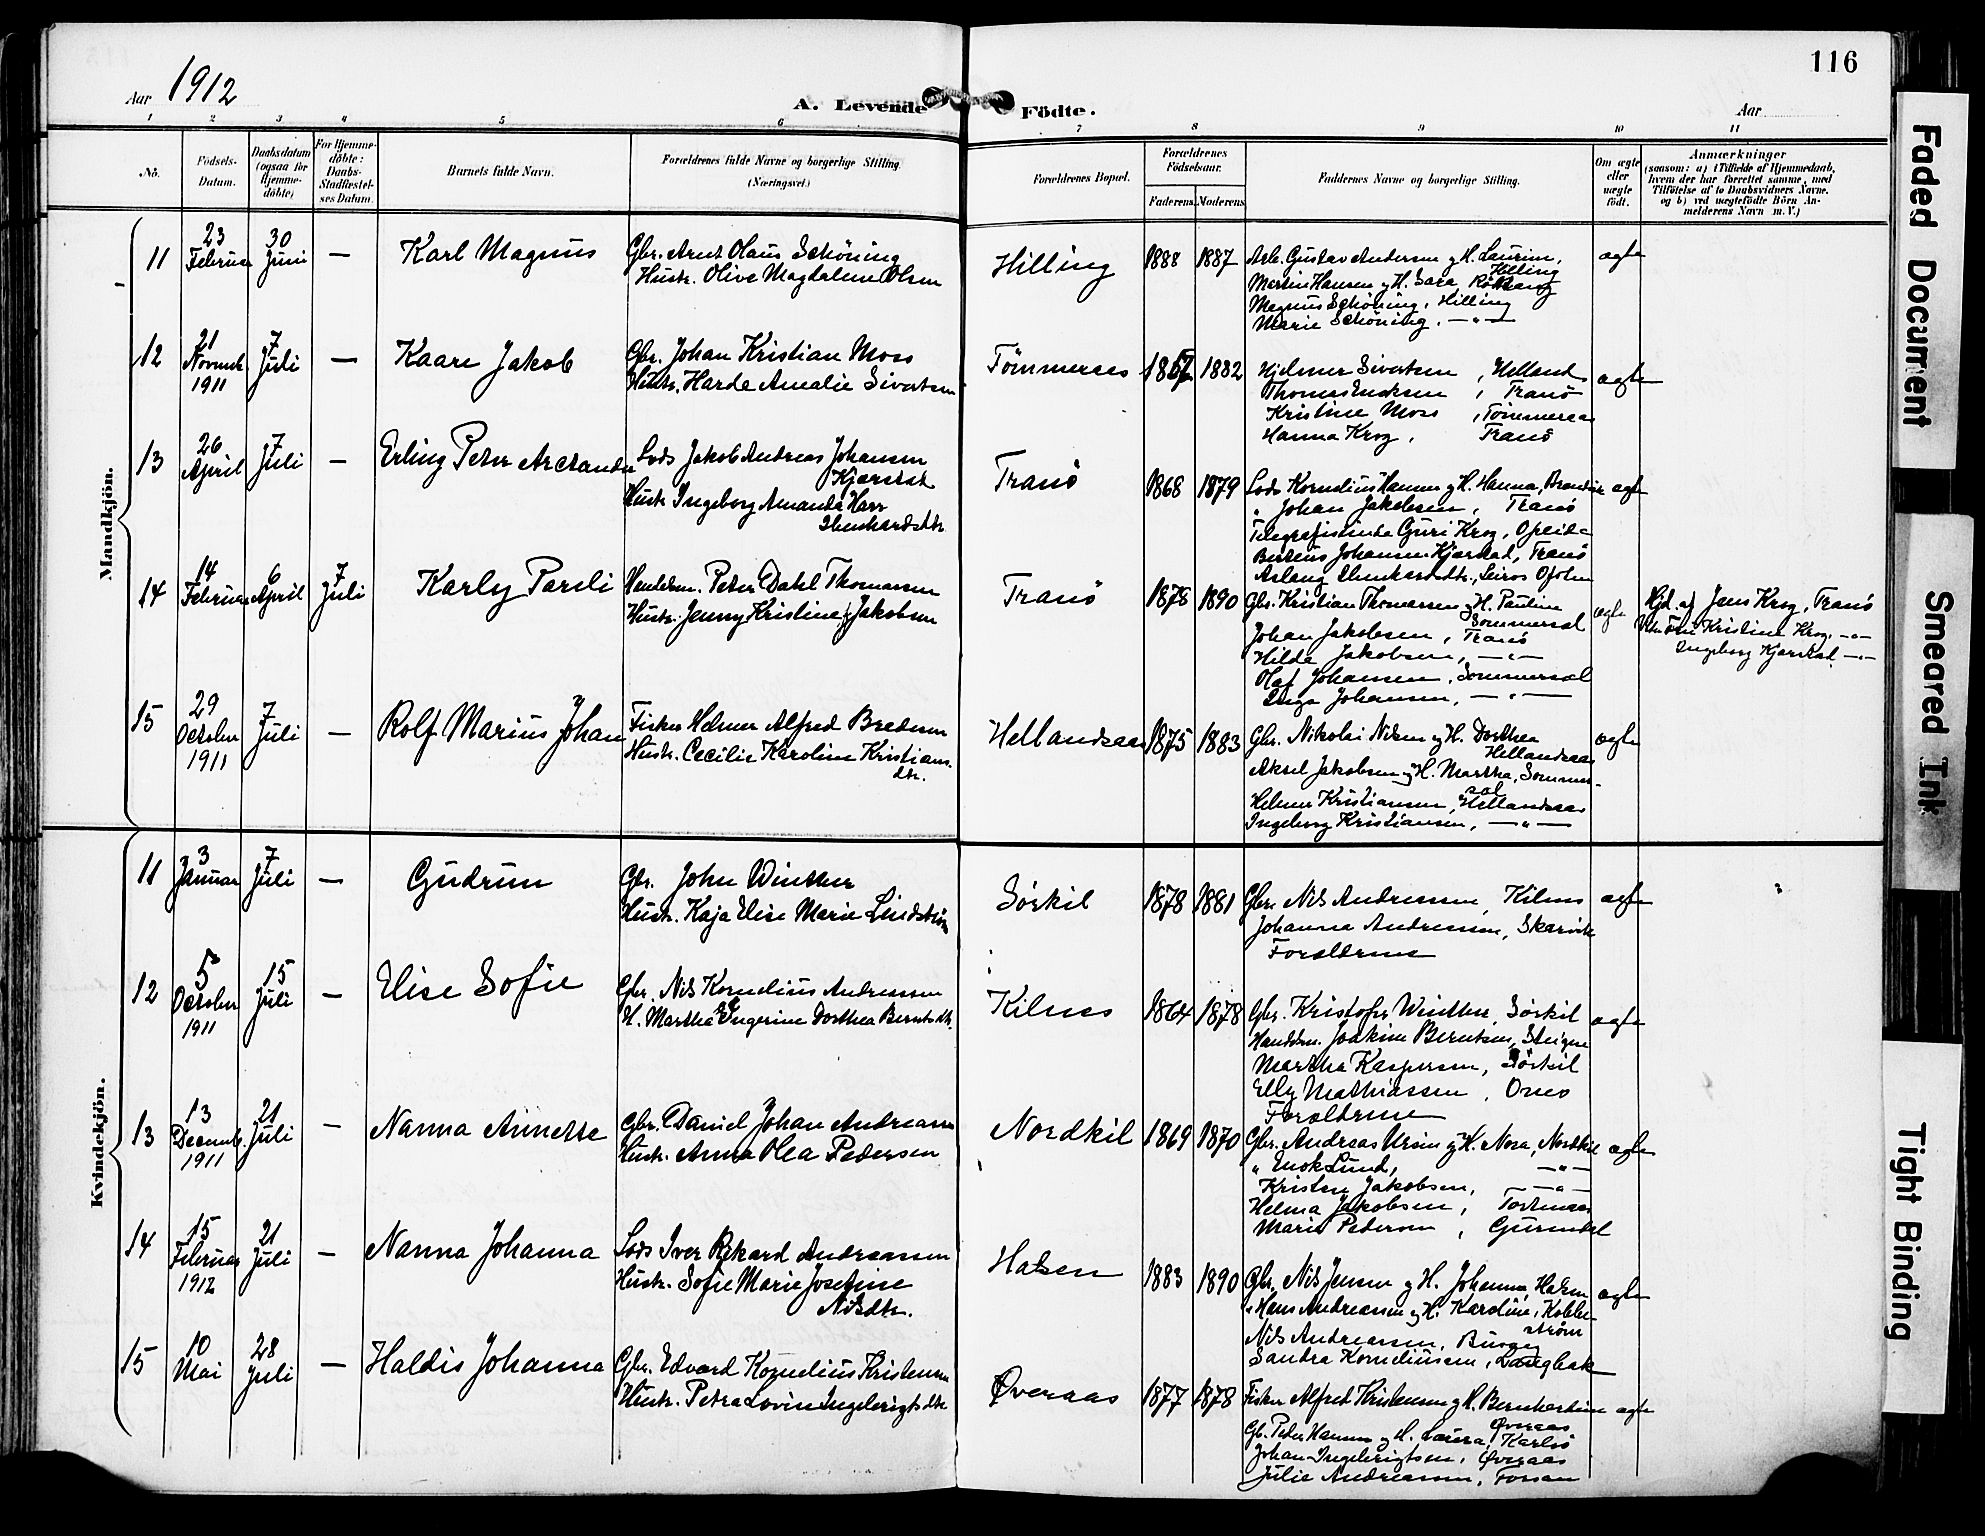 116
Aar 1912
A. Levende Födte.
Aar
1 2 3 4 5 6 7 8 9 10 11
No.
Födsels-Datum.
Daabsdatum (ogsaa for Hjemme-döbte)
For Hjemme-döbte: Daabs-Stadfæstel-ses Datum.
Barnets fulde Navn.
Forældrenes fulde Navne og borgerlige Stilling. (Næringsvei.)
Forældrenes Bopæl.
Forældrenes Födselsaar.
Faderens. Moderens.
Faddernes Navne og borgerlige Stilling.
Om ægte eller uægte født.
Anmærkninger
(saasom: a) i Tilfælde af Hjemmedaab,
hvem der har forrettet samme, med
Tilföielse af to Daabsvidners Navne.
og b) ved uægtefödte Börn An-
melderens Navn m. V.)
Mandkjön.
11 23 Februar 30 Juni — Karl Magnus
Gbr. Arnt Olaus Schöning
Hustr. Olive Magdalene Olsen
Hilling 1888 1887
Arb. Gustav Andersen og H. Laurine,
Hilling
Martin Hansen og H. Sara,
Magnus Schöning, Hilling
Marie Schöning, —"—
ægte
12 21 Novemb. 1911 7 Juli — Kaare Jakob
Gbr. Johan Kristian Moss
Hustr. Harda Amalie Sivertsen
Tömmeraas 1882
Hjelmer Sivertsen, Helland
Thomas Enoksen, Tranö
Kristine Moss, Tömmeraas
Hanna Krog, Tranö
ægte
13 26 April 7 Juli — Erling Peter Arctander
Lods Jakob Andreas Johansen
Kjærstad
Hustr. Ingeborg Amanda Harr
Tranö 1868 1879
Lods Kornelius Hansen og H. Hanna,
" Johan Jakobsen, Tranö
Telegrafistinde Guri Krog, Opeide
Berteus Johansen Kjærstad, Tranö
ægte
14 14 Februar 6 April 7 Juli Karly Pareli
Handelsm. Peter Dahl Thomassen
Hustr. Jenny Kristine Jakobsen
Tranö 1878 1890
Gbr. Kristian Thomassen og H. Pauline
Sommersel
Johan Jakobsen, Tranö
Hilda Jakobsen, —"—
Olaf Johansen, Sommersel
Inga Johansen, —"—
ægte
Hjd. af Jens Krog, Tranö
Kristine Krog, —"—
Ingeborg Kjærstad —"—
15 29 October 1911 7 Juli — Rolf Marius Johan
Fisker Helmer Alfred Bredesen
Hustr. Cecilie Karoline Kristians-
dtr.
Hellandsaas 1875 1883
Gbr. Nikolai Nilsen og H. Dorthea
Hellandsaas
Aksel Jakobsen og H. Martha, Sommer-
sel
Helmer Kristiansen, Hellandsaas
Ingeborg Kristiansen, —"—
ægte
Kvindekjön.
11 3 Januar 7 Juli — Gudrun
Gbr. John Winther
Hustr. Kaja Elise Marie Lindström
Sörkil 1878 1881
Gbr. Nils Andreassen, Kilnes
Johanna Andreassen, Skarvik
Forældrene
ægte
12 5 October 1911 15 Juli — Elise Sofie
Gbr. Nils Kornelius Andreassen
H. Martha Ingerine Dorthea Berntsdtr.
Kilnes 1864 1878
Gbr. Kristofer Winther, Sörkil
Handelsm. Joakim Berntsen, Steigen
Martha Kaspersen, Sörkil
Elly Mathiassen, Ornes
Forældrene
ægte
13 13 Decemb. 1911 21 Juli — Nanna Annette
Gbr. Daniel Johan Andreassen
Hustr. Anna Olea Pedersen
Nordkil 1869 1870
Gbr. Andreas Ursin og H. Nora, Nordkil
" Enok Lund, —"—
Kristen Jakobsen, —"—
Helma Jakobsen,
Marie Pedersen,
ægte
14 15 Februar 1912 21 Juli — Nanna Johanna
Lods Iver Rikard Andreassen
Hustr. Sofie Marie Josefine
Nilsdtr.
Halsen 1883 1890
Gbr. Nils Jensen og H. Johanna, Halsen
" Hans Andreassen og H. Karoline, Kobbe-
ström
Nils Andreassen,
Sandra Korneliussen, Langbak
ægte
15 10 Mai 28 Juli — Haldis Johanna
Gbr. Edvard Kornelius Kristensen
Hustr. Petra Lovise Ingebrigtsdtr.
Överaas 1877 1878
Fisker Alfred Kristensen og H. Bernhardine
Överaas
Gb. Peder Hansen og H. Laura, Karlsö
Johan Ingebrigtsen, Överaas
Julie Andreassen, Forsan
ægte
Faded Document
Smeared Ink
Tight Binding